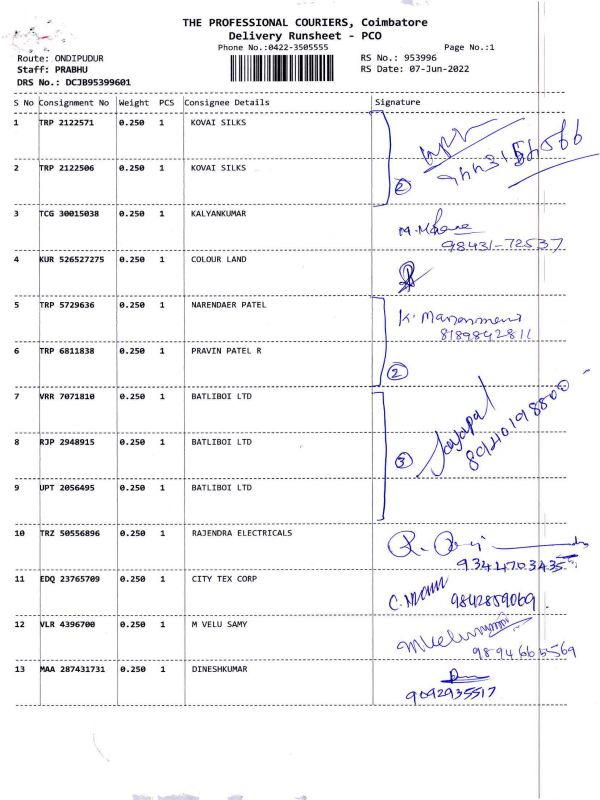 THE PROFESSIONAL COURIERS, Coimbatore
Delivery Runsheet - PCO
Phone No.:0422-3505555
Page No.:1
Route: ONDIPUDUR
RS No.: 953996
Staff: PRABHU
RS Date: 07-Jun-2022
DRS No.: DCJB95399601
S No Consignment No Weight PCS Consignee Details Signature
1 TRP 2122571 0.250 1 KOVAI SILKS
2 TRP 2122506 0.250 1 KOVAI SILKS
2
3 TCG 30015038 0.250 1 KALYANKUMAR
98431-72537
4 KUR 526527275 0.250 1 COLOUR LAND
5 TRP 5729636 0.250 1 NARENDAER PATEL
8189842811
6 TRP 6811838 0.250 1 PRAVIN PATEL R
2
7 VRR 7071810 0.250 1 BATLIBOI LTD
8 RJP 2948915 0.250 1 BATLIBOI LTD
Jayapal
3
9 UPT 2056495 0.250 1 BATLIBOI LTD
10 TRZ 50556896 0.250 1 RAJENDRA ELECTRICALS
11 EDQ 23765709 0.250 1 CITY TEX CORP
9842859069
12 VLR 4396700 0.250 1 M VELU SAMY
13 MAA 287431731 0.250 1 DINESHKUMAR
9092935517